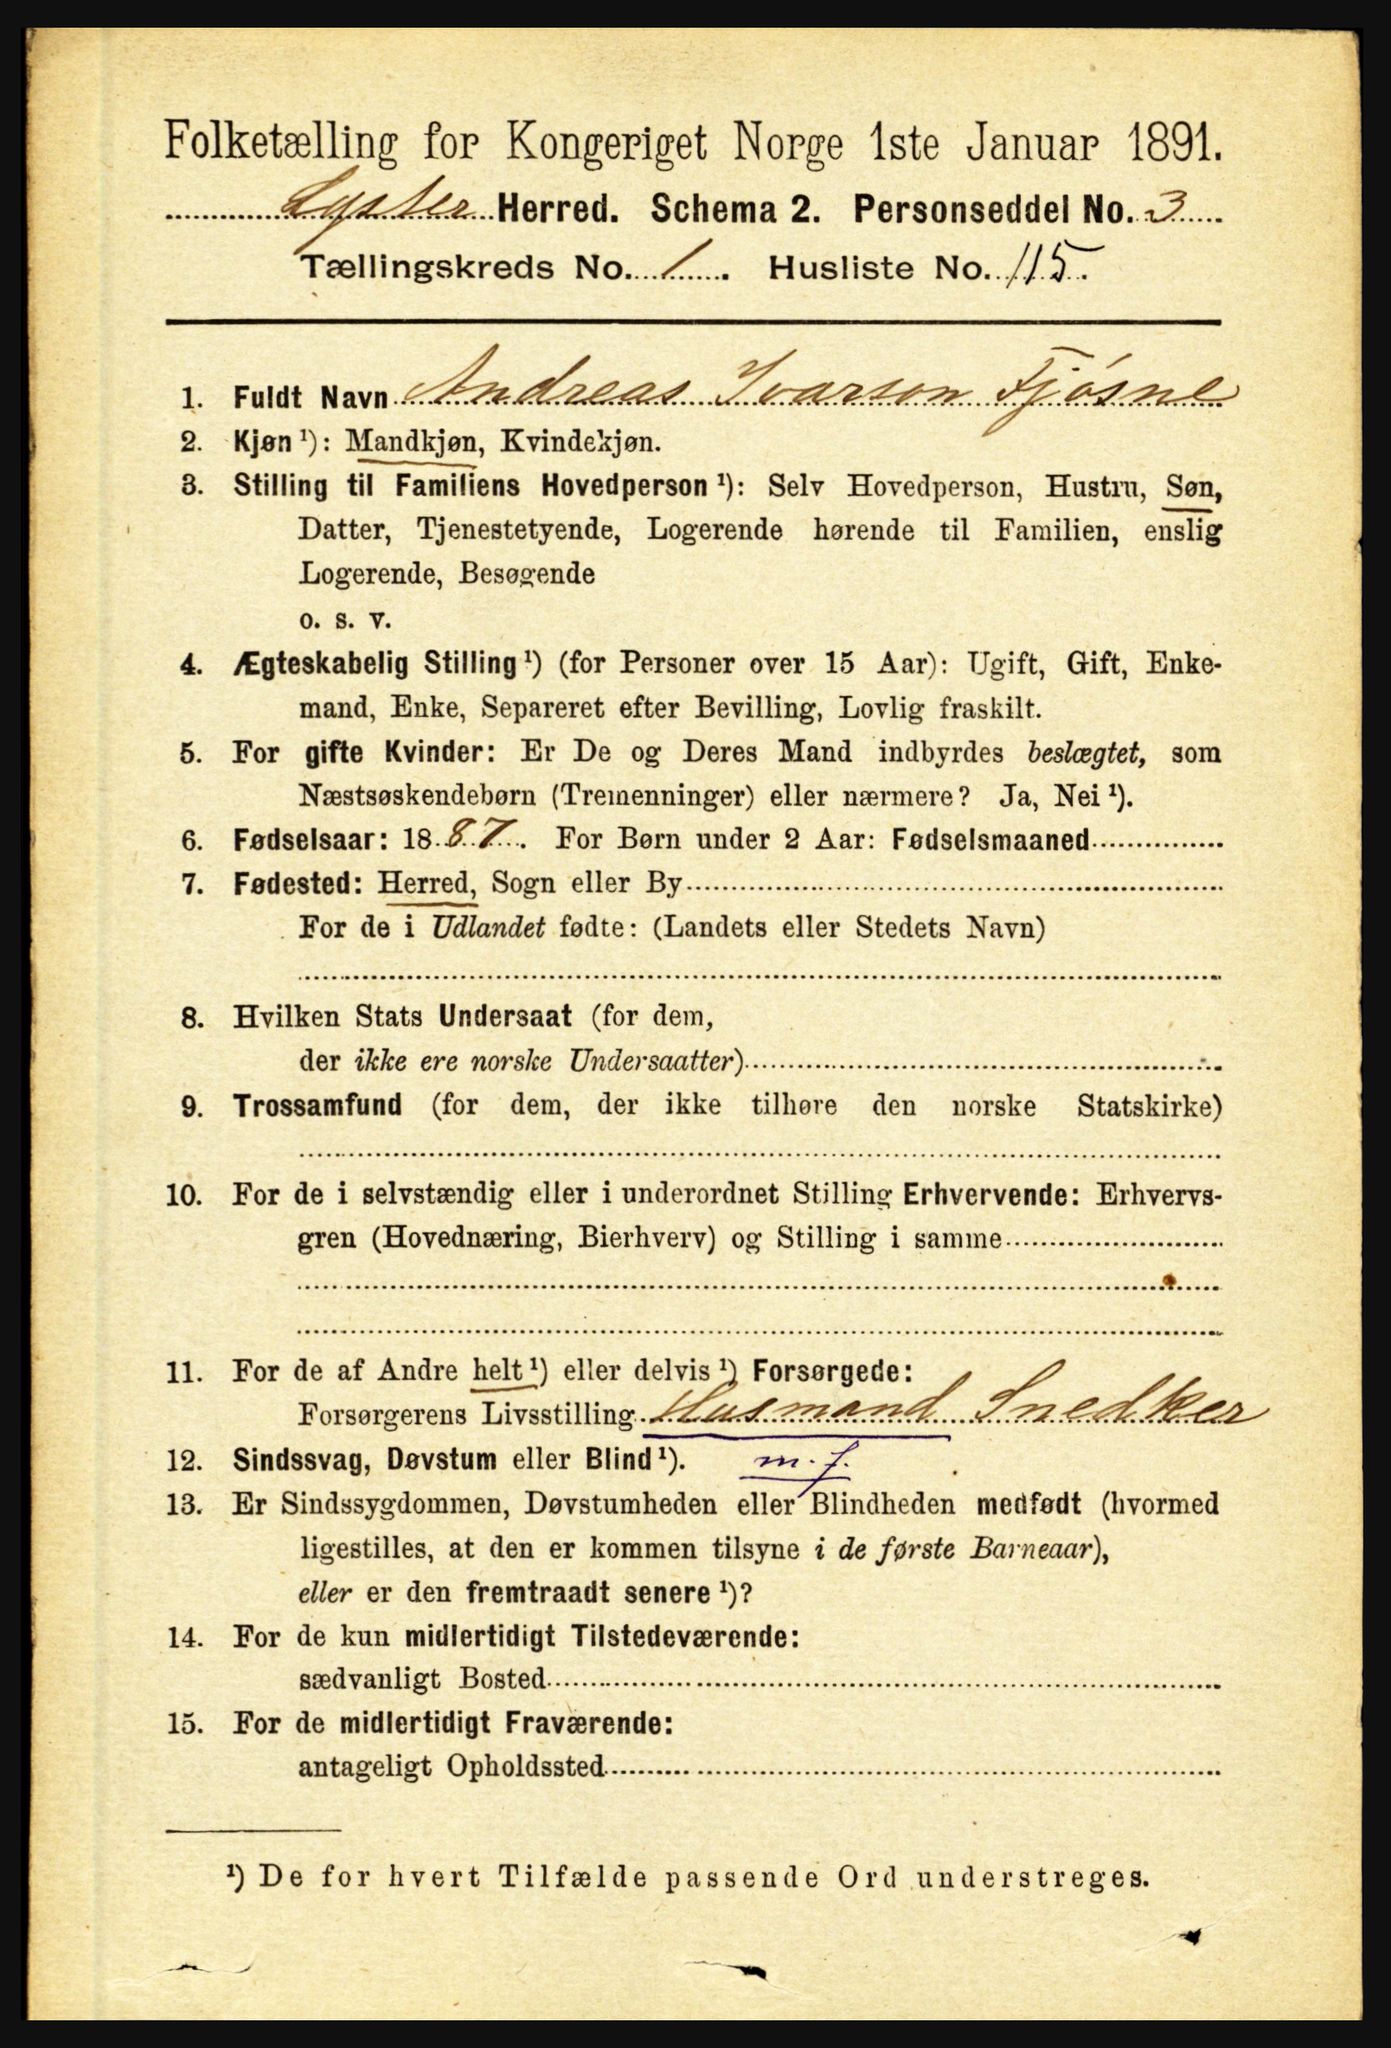 Folketælling for Kongeriget Norge 1ste Januar 1891.
Lyster Herred. Schema 2. Personseddel No. 3
Tællingskreds No. 1. Husliste No. 115.
1. Fuldt Navn Andreas Ivarson Fjøsne
2. Kjøn ¹): Mandkjøn, Kvindekjøn.
3. Stilling til Familiens Hovedperson ¹): Selv Hovedperson, Hustru, Søn,
Datter, Tjenestetyende, Logerende hørende til Familien, enslig
Logerende, Besøgende
o. s. v.
4. Ægteskabelig Stilling ¹) (for Personer over 15 Aar): Ugift, Gift, Enke-
mand, Enke, Separeret efter Bevilling, Lovlig fraskilt.
5. For gifte Kvinder: Er De og Deres Mand indbyrdes beslægtet, som
Næstsøskendebørn (Tremenninger) eller nærmere? Ja, Nei ¹).
6. Fødselsaar: 1887. For Børn under 2 Aar: Fødselsmaaned
7. Fødested: Herred, Sogn eller By
For de i Udlandet fødte: (Landets eller Stedets Navn)
8. Hvilken Stats Undersaat (for dem,
der ikke ere norske Undersaatter)
9. Trossamfund (for dem, der ikke tilhøre den norske Statskirke)
10. For de i selvstændig eller i underordnet Stilling Erhvervende: Erhvervs-
gren (Hovednæring, Bierhverv) og Stilling i samme
11. For de af Andre helt ¹) eller delvis ¹) Forsørgede:
Forsørgerens Livsstilling Husmand Snedker
12. Sindssvag, Døvstum eller Blind ¹). m. j.
13. Er Sindssygdommen, Døvstumheden eller Blindheden medfødt (hvormed
ligestilles, at den er kommen tilsyne i de første Barneaar),
eller er den fremtraadt senere ¹)?
14. For de kun midlertidigt Tilstedeværende:
sædvanligt Bosted
15. For de midlertidigt Fraværende:
antageligt Opholdssted
¹) De for hvert Tilfælde passende Ord understreges.